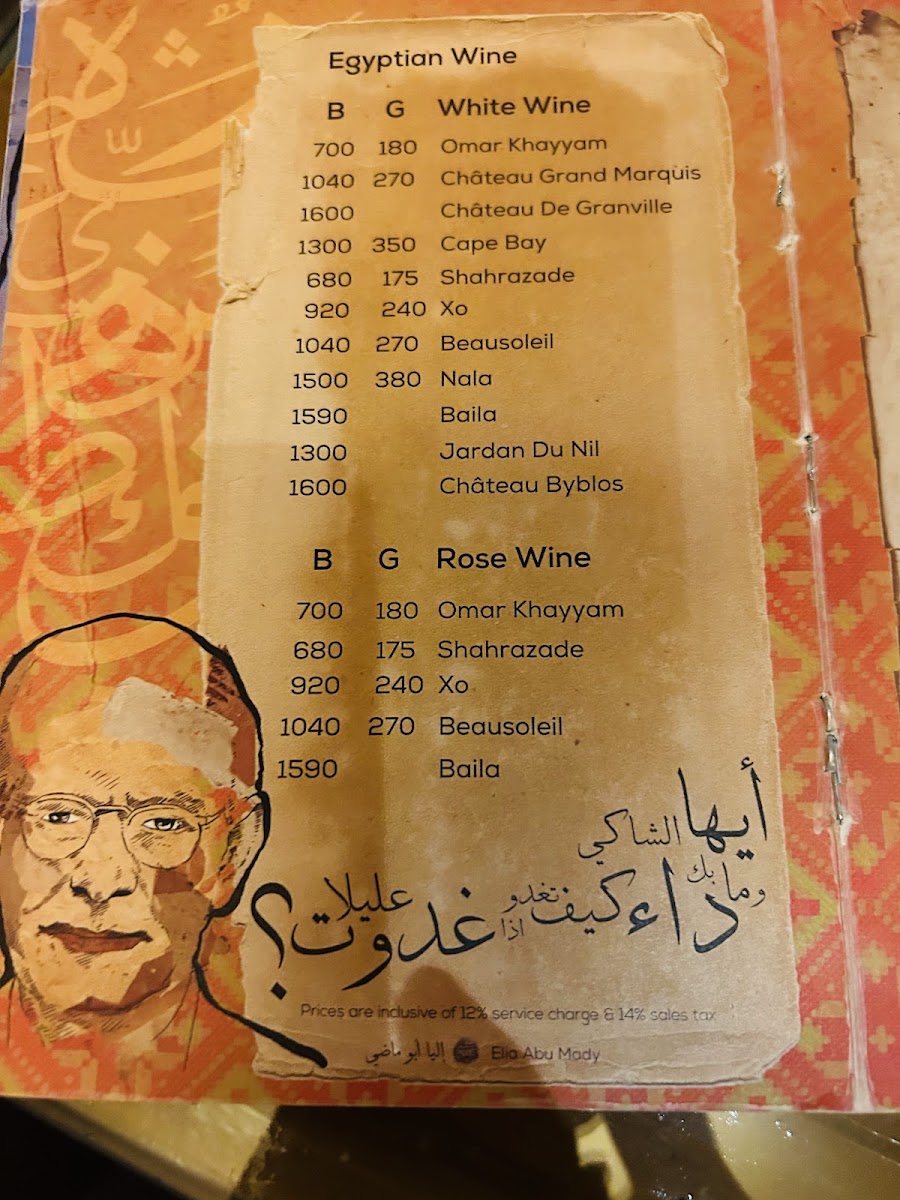 Egyptian Wine
B G White Wine
700 180 Omar Khayyam
1040 270 Château Grand Marquis
1600 Château De Granville
1300 350 Cape Bay
680 175 Shahrazade
920 240 Xo
1040 270 Beausoleil
1500 380 Nala
1590 Baila
1300 Jardan Du Nil
1600 Château Byblos
B G Rose Wine
700 180 Omar Khayyam
680 175 Shahrazade
920 240 Xo
1040 270 Beausoleil
1590 Baila
أيها الشاكي
وما بك داء كيف تغدو اذا غدوت عليلا؟
Prices are inclusive of 12% service charge & 14% sales tax
إليا أبو ماضي Elia Abu Mady